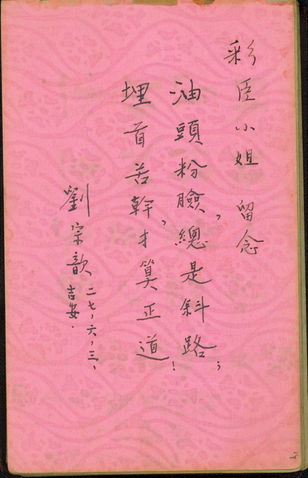 彩臣小姐 留念
油頭粉臉，總是斜路；
埋首苦幹，才算正道！
劉宗歆 二七，六，三，
吉安．